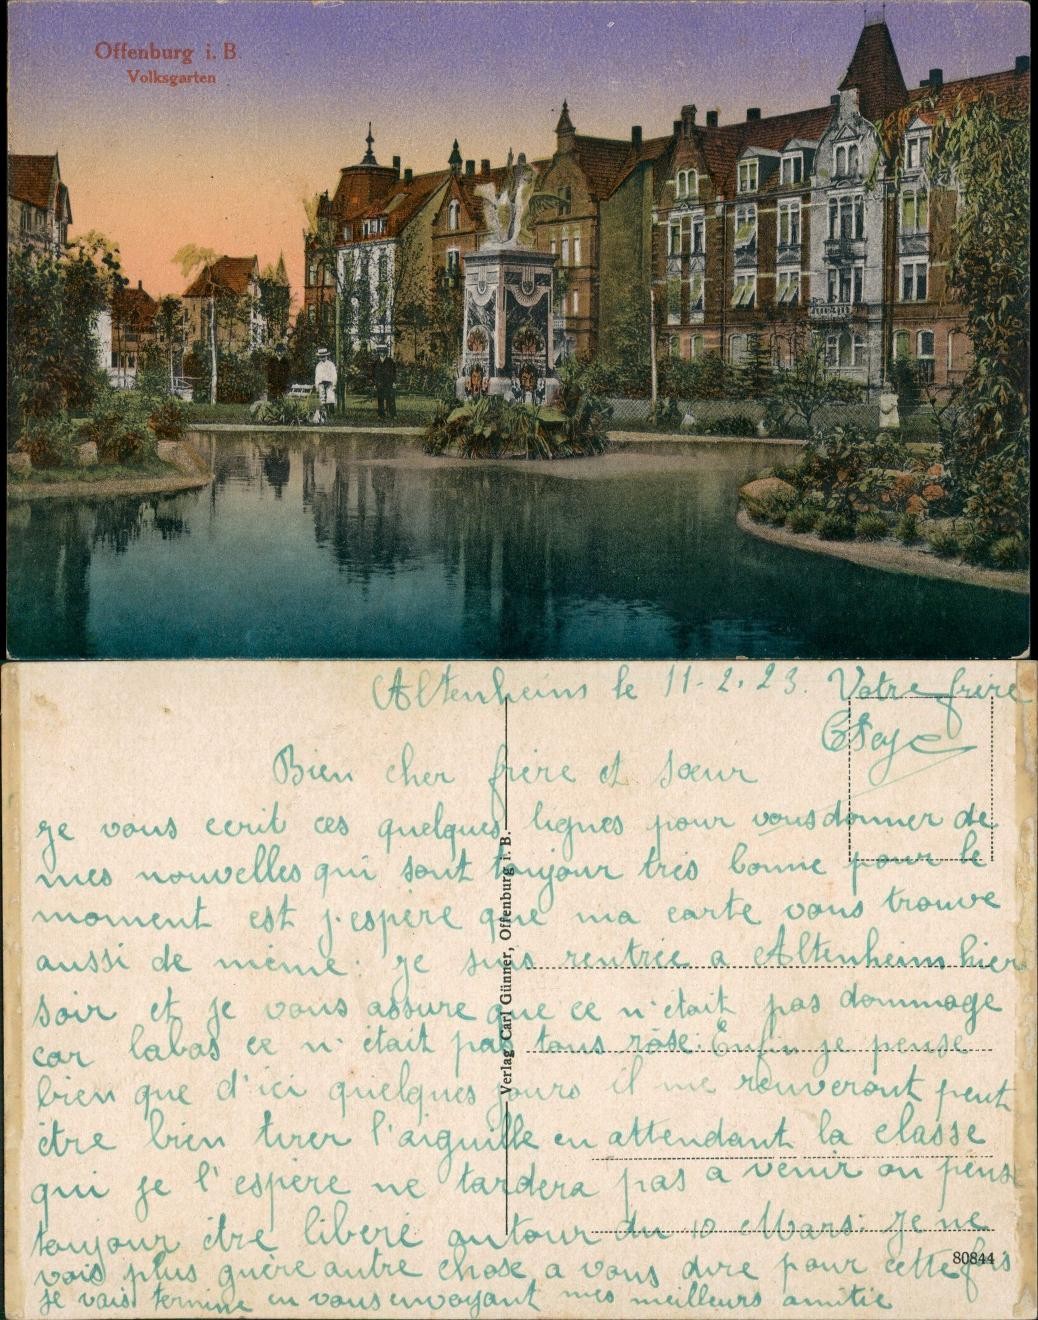 Offenburg i. B.
Volksgarten
Altenheins le 11-2-23. Votre frère
Bien cher frère et sœur
je vous ecrit ces quelques lignes pour vous donner de
mes nouvelles qui sont toujour très bonne pour le
moment est j'espère que ma carte vous trouve
aussi de même. je suis rentrée a Altenheins hier
soir et je vous assure que ce n'était pas dommage
car labas ce n'était pas tous rose. Enfin je pense
bien que d'ici quelques jours il me renuveront peut
être bien tirer l'aiguille en attendant la classe
qui je l'espère ne tardera pas a venir on pense
toujour être libéré autour du 10 Mars. Je ne
vois plus guère autre chose a vous dire pour cette fois
je vais terminé en vous envoyant mes meilleurs amitie
Verlag Carl Günner, Offenburg i. B.
80844